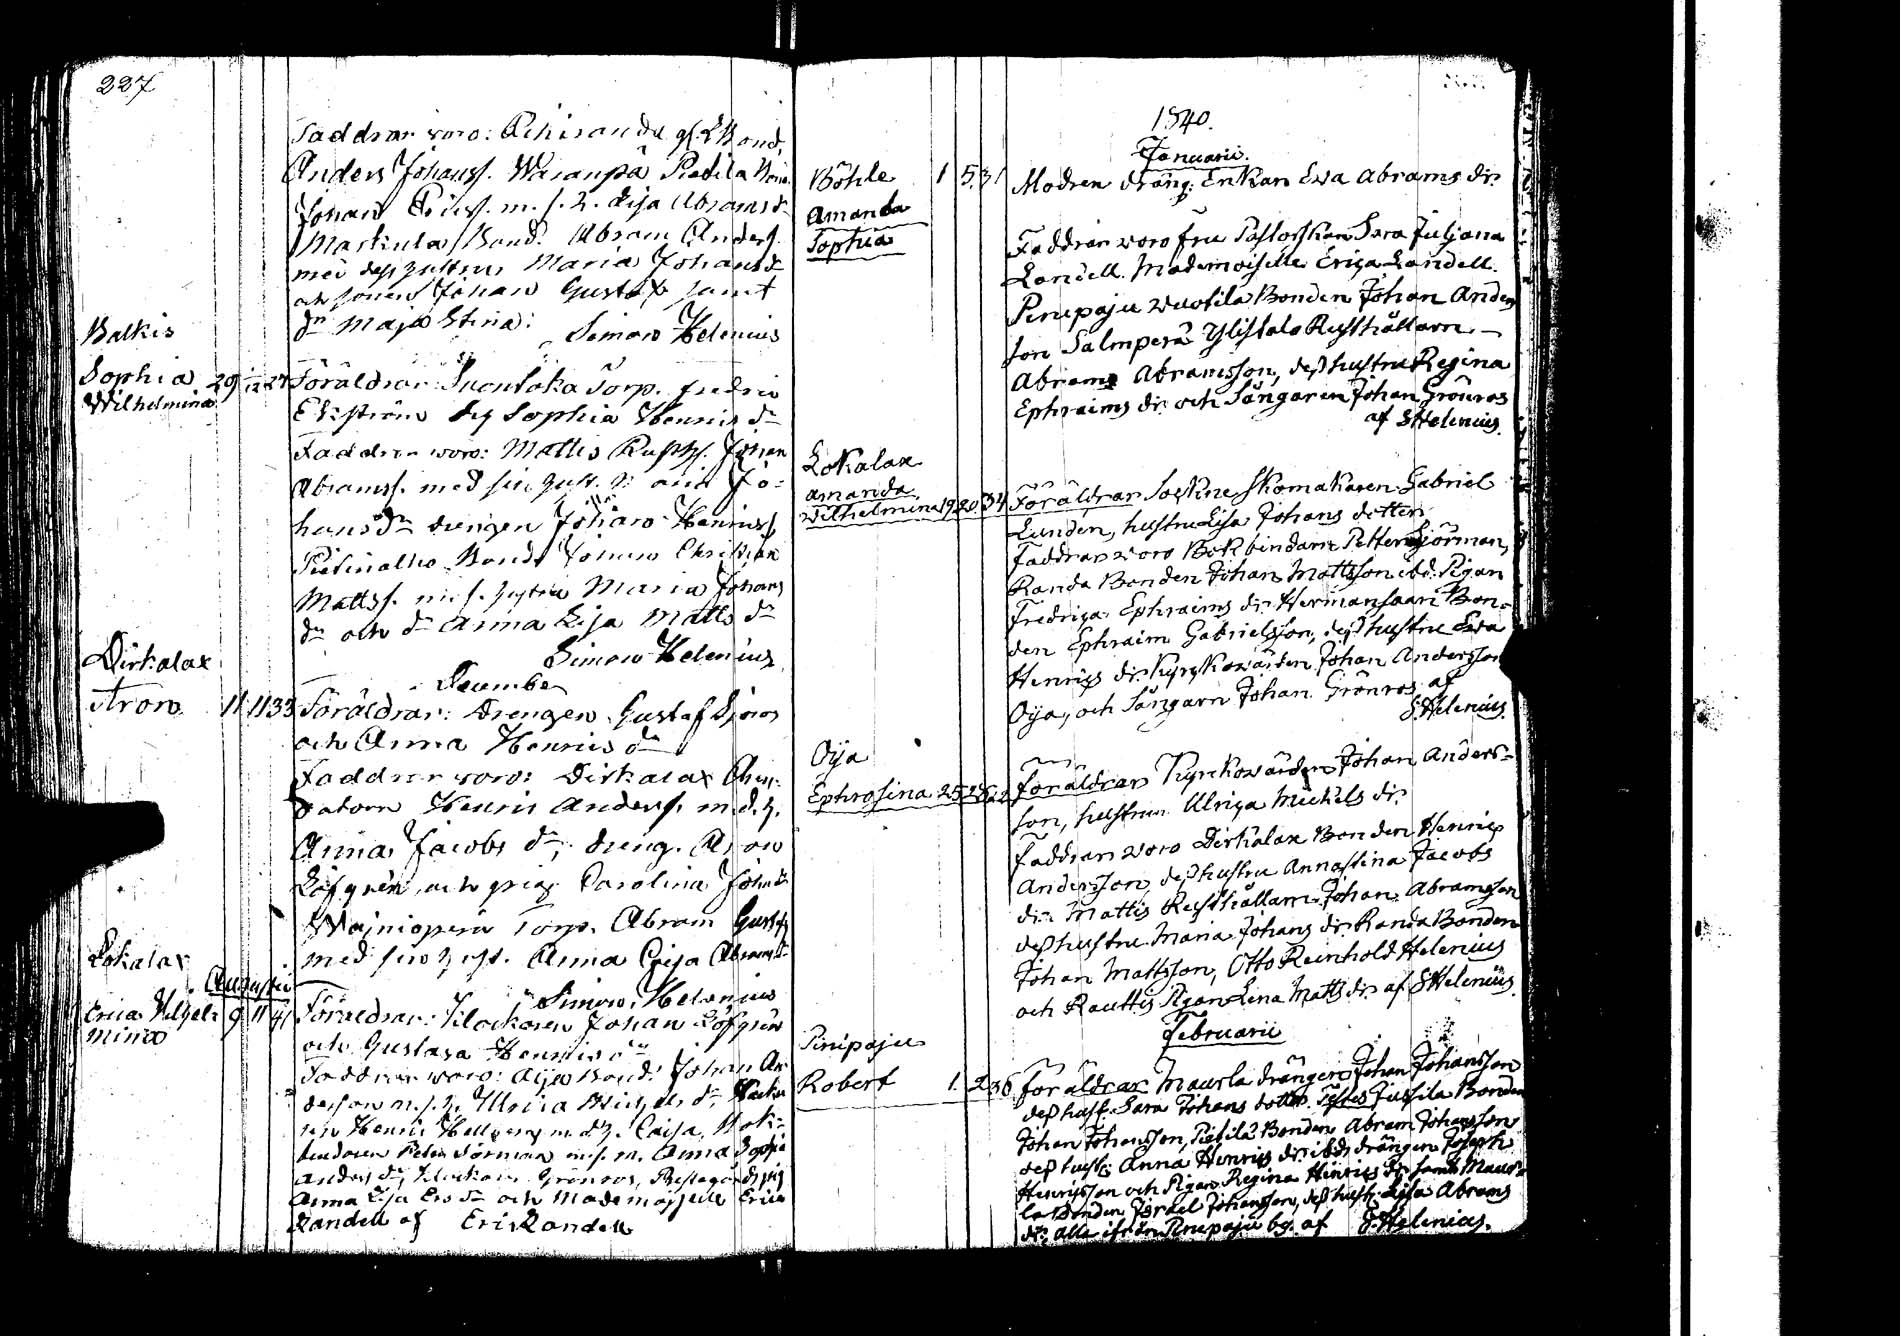 227
Faddrar woro: Bond.
Anders Johanss. Pietila
Johan m. s. h. Lisa Abramsd
Bond. Abram Anders.
med dess hustru Maria Johansd
och sonen Johan Gustaf samt
dr Maja Stina: Simon Helenius
Balkis
Sophia 29 12 27 Föräldrar: Torp. Fredric
Wilhelmina
Ekström Sophia Henrics dr
Faddrar woro: Mattis Rusth. Johan
Abramss. med sin hust. Jo-
hans dr drengen Johan Henricss
Bond. Christian
Mattss. m. s. hustru Maria Johans
dr och dr Anna Lisa Matts dr
Simon Helenius
December
Dirkalax
Aron 11 11 33 Föräldrar: Drengen Gustaf
och Anna Henrics dr
Faddrar woro: Dirkalax
Henric Anderss. m. d. h.
Anna Jacobs dr, dreng. Aron
Löfgrén, och pig. Carolina Johans
Torp. Abram Gustafs
med sin hust. Anna Caisa Abramsd
Simon Helenius
Lokalax
Augusti
Erica Vilhel- 9 11 41 Föräldrar: Klockaren Johan Löfgrén
mina
och Gustava Henrics dr
Faddrar woro: Oija Bond. Johan An-
derson m. s. h. Ulrica Michels dr,
Henric m. d. h. Caisa, Bok-
bindaren Petter Sörman m. s. h. Anna Sophia
Anders dr, Klockaren Grönros,
Anna Lisa dr och Mademoiselle Erica
Randell af Eric Randell
1840.
Januarii
Böhle 1 5 31 Modren dräng. Enkan Ewa Abrams dr
Amanda
Sophia
Faddrar woro fru Pastorskan Sara Juliana
Randell. Mademoiselle Erica Randell.
Pinipaju Bonden Johan Anders
son Salmperä Ylistalo Rusthållaren
Abram Abramsson, dess hustru Regina
Ephraims dr och Sångaren Johan Grönros
af S Helenius.
Lokalax
Amanda
Wilhelmina 19 20 34 Föräldrar Sockne Skomakaren Gabriel
Lunden, hustru Lisa Johans dotter
Faddrar woro Bokbindarn Petter Sörman,
Randa Bonden Johan Mattsson ibd. Pigan
Fredrica Ephraims dr Hermansaari Bon-
den Ephraim Gabrielsson, dess hustru Ewa
Henrics dr Kyrkowärden Johan Andersson
Oija, och Sångarn Johan Grönros af
S Helenius.
Oija
Ephrosina 25 26 22 föräldrar Kyrkowärden Johan Anders-
son, hustrun Ulrica Michels dr
Faddrar woro Dirkalax Bonden Henric
Andersson, dess hustru Anna Stina Jacobs
dr Mattis Rusthållarn Johan Abramsson
dess hustru Maria Johans dr Randa Bonden
Johan Mattsson, Otto Reinhold Helenius
och Rauttis Pigan Lena Matts dr af S Helenius.
Februarii
Pinipaju
Robert 1 2 36 Föräldrar Maurla drängen Johan Johansson
dess hust. Sara Johans dotter. Testes Jussila Bonden
Johan Johansson, Pietilä Bonden Abram Johansson
dess hust. Anna Henrics dr ibd. drängen Joseph
Henricsson och Pigan Regina Henrics dr samt Maur-
la Bonden Israel Johansson, dess hust. Lisa Abrams
dr, alla ifrån Pinipaju by. af S. Helenius.